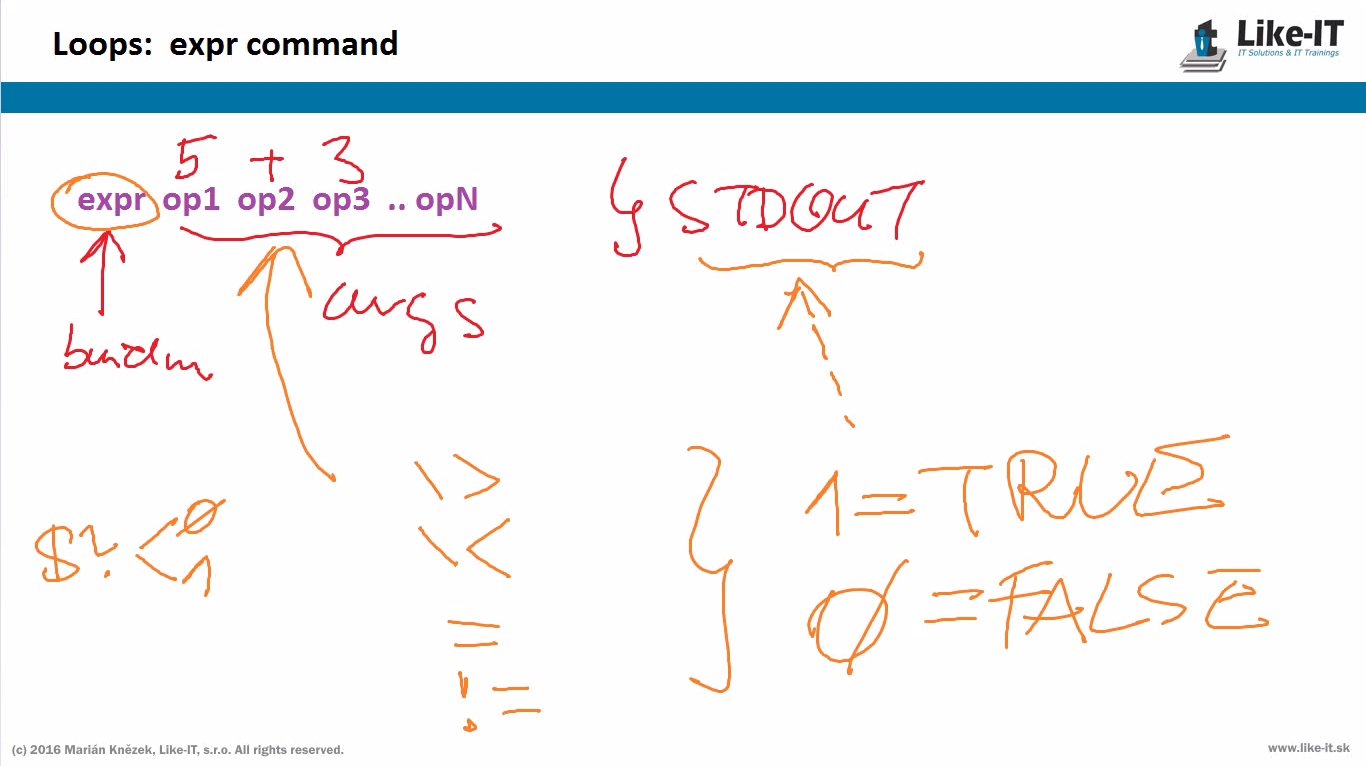 Loops: expr command
Like-IT
IT Solutions & IT Trainings
5 + 3
expr op1 op2 op3 .. opN
STDOUT
args
\>
1 = TRUE
$? < 0
1
\<
=
0 = FALSE
!=
(c) 2016 Marián Knězek, Like-IT, s.r.o. All rights reserved.
www.like-it.sk